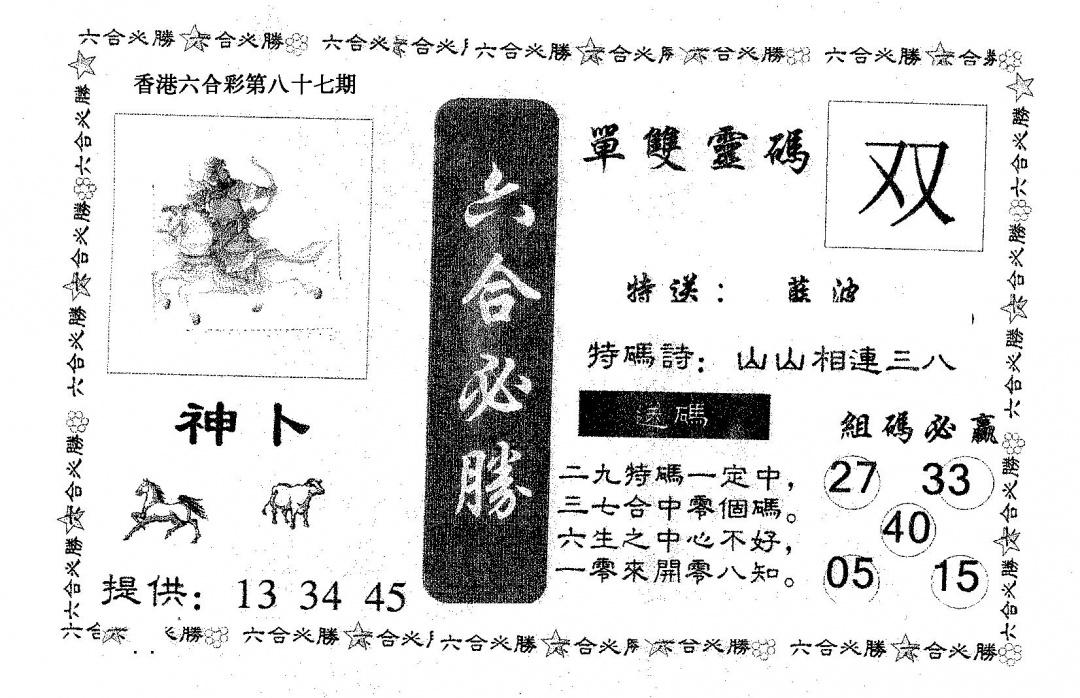 六合必勝 六合必勝 六合必 六合必 六合必勝 六合必 六合必勝 六合必勝 六合
香港六合彩第八十七期
神卜
提供：13 34 45
六合必勝
單雙靈碼
双
特送：藍波
特碼詩：山山相連三八
送碼
二九特碼一定中，
三七合中零個碼。
六生之中心不好，
一零來開零八知。
組碼必贏
27 33
40
05 15
六合必勝 六合必勝 六合必勝 六合必勝 六合必勝
六合必勝 六合必勝 六合必勝 六合必勝 六合必勝
六合 必勝 六合必勝 六合必 六合必勝 六合必 六合必勝 六合必勝 六合必勝